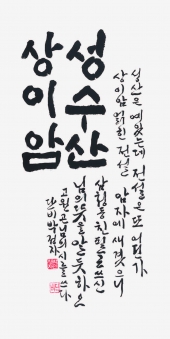 성수산
상이암
성산은 예있는데 전설은 또 어떤가
상이암 얽힌 전설 암자에 새겼으니
삼청동 친필로 쓰신
님의 뜻을 알 듯 하오
님의 시를 쓰다
단비